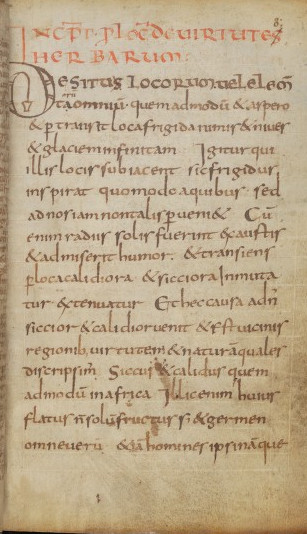 INCPT PLOC DE VIRTUTES
HERBARUM
De situs locorum uel elem̄
ta omniū quem ad modū & aspero
& ꝑtransit loca frigida nimis & niues
& glaciem infinitam Igitur qui
illis locis subiacent sic frigidus
inspirat quomodo aquibus sed
ad nos iam non talis ꝑueni& Cū
enim radiis solis fuerint & austis
& admiserit humor & transiens
ꝑ loca calidiora & sicciora Inmuta
tur & tenuatur Et hec causa ad n̄
siccior & calidior uenit & est uicinis
regionib; uirtutem & naturā quales
discripsim Siccus & calidus quem
ad modū in africa Illic enim huius
flatus n̄ solū fructus s; & germen
omne uerū & iā homines ipsi nāque